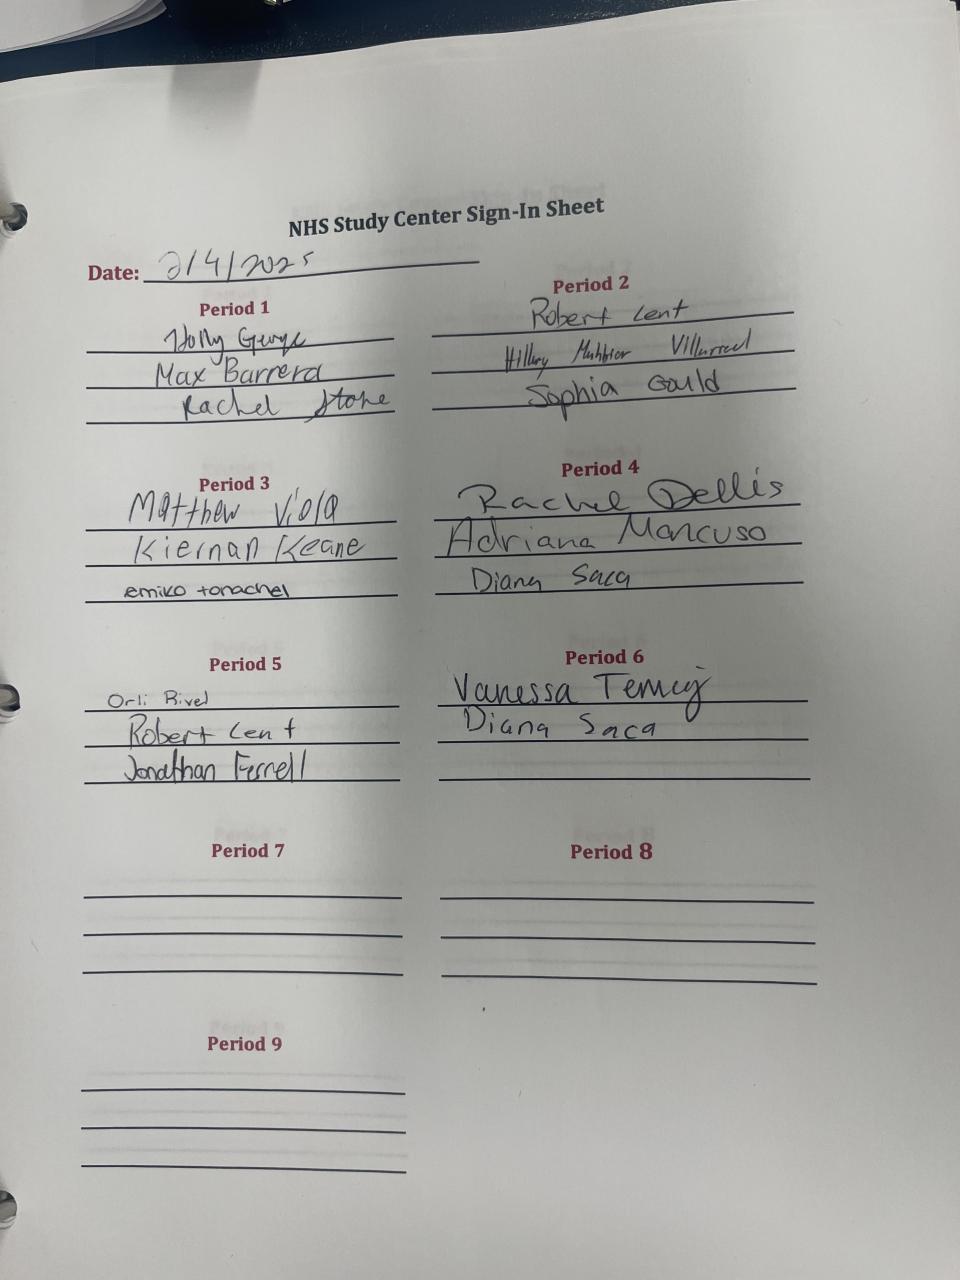 NHS Study Center Sign-In Sheet
Date: 2/4/2025
Period 1
Holly George
Max Barrera
Rachel Stone
Period 2
Robert Lent
Hillary Villarreal
Sophia Gould
Period 3
Matthew Viola
Kiernan Keane
emiko tonachel
Period 4
Rachel Dellis
Adriana Mancuso
Diana Saca
Period 5
Orli Rivel
Robert Lent
Jonathan Ferrell
Period 6
Vanessa
Diana Saca
Period 7
Period 8
Period 9